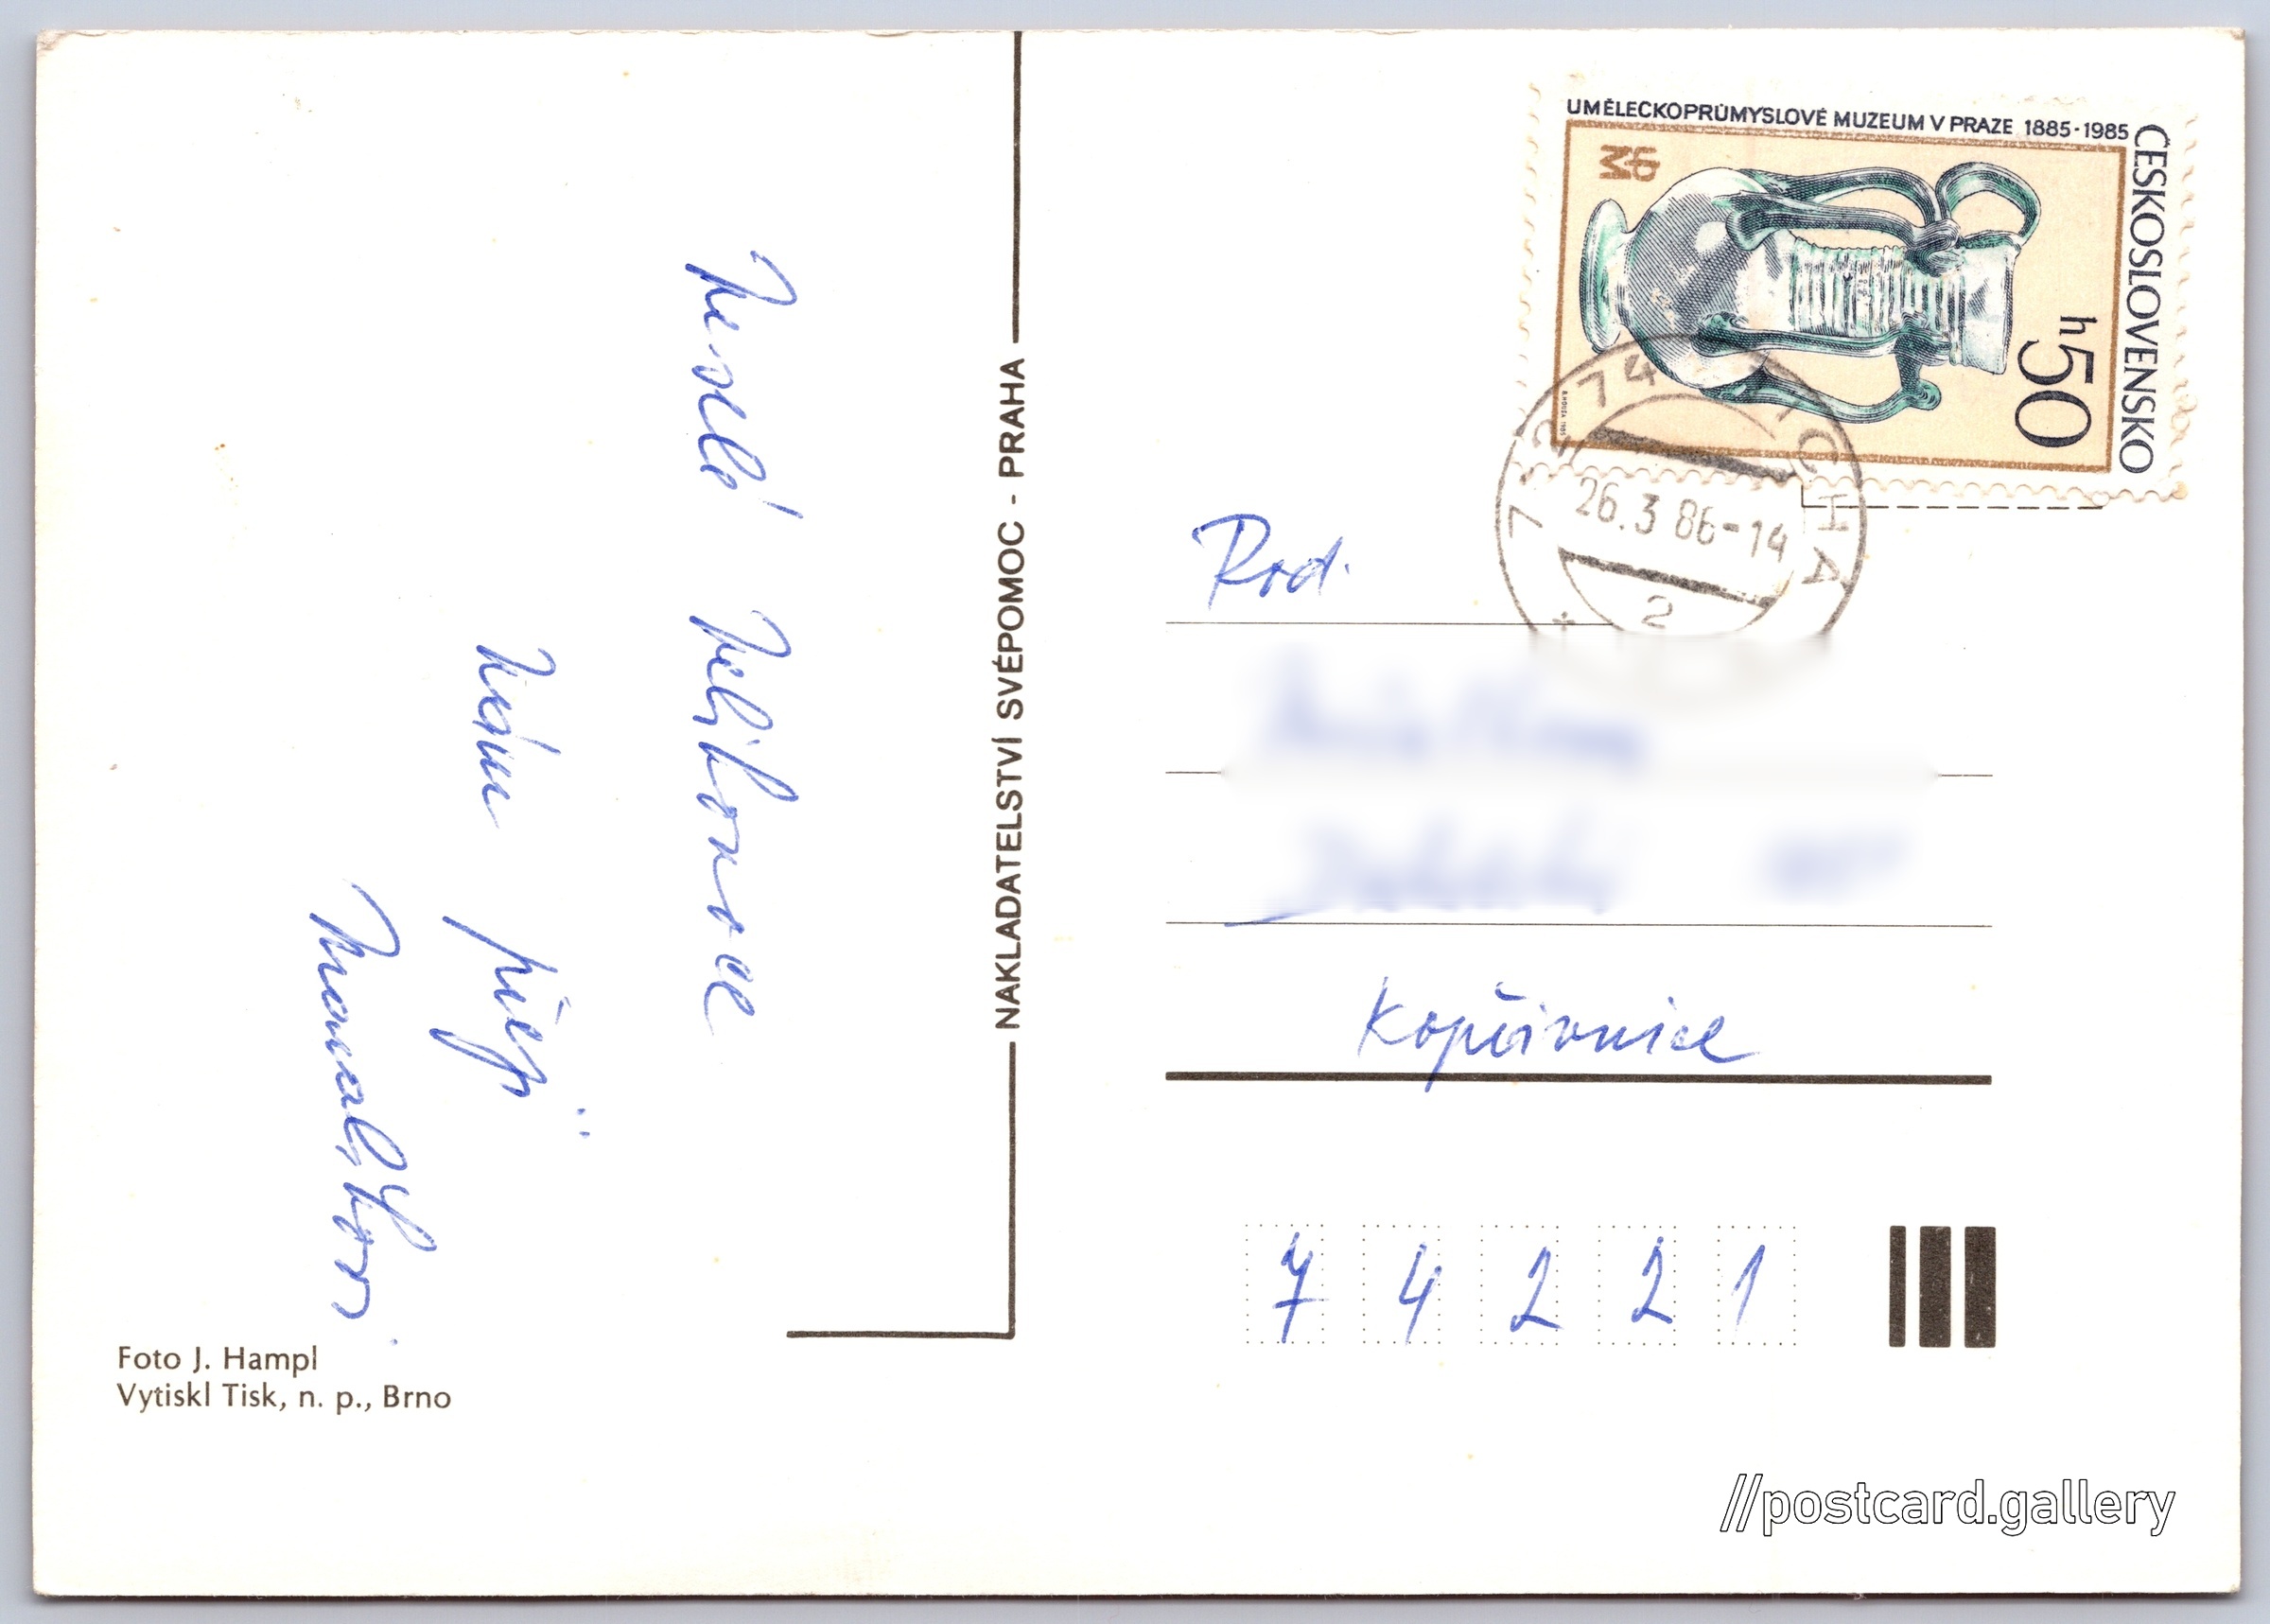 Veselé Velikonoce
Vám přejí
NAKLADATELSTVÍ SVÉPOMOC - PRAHA
Foto J. Hampl
Vytiskl Tisk, n. p., Brno
UMĚLECKOPRŮMYSLOVÉ MUZEUM V PRAZE 1885-1985
ČESKOSLOVENSKO
h 50
26.3 86-14
2
Rod.
Kopřivnice
74221
//postcard.gallery